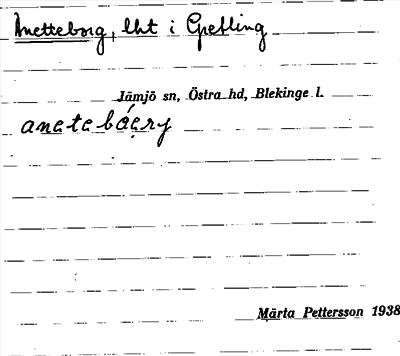 Anetteborg, lht i Grefling
Jämjö sn, Östra hd, Blekinge l.
anetebáęry
Märta Pettersson 1938